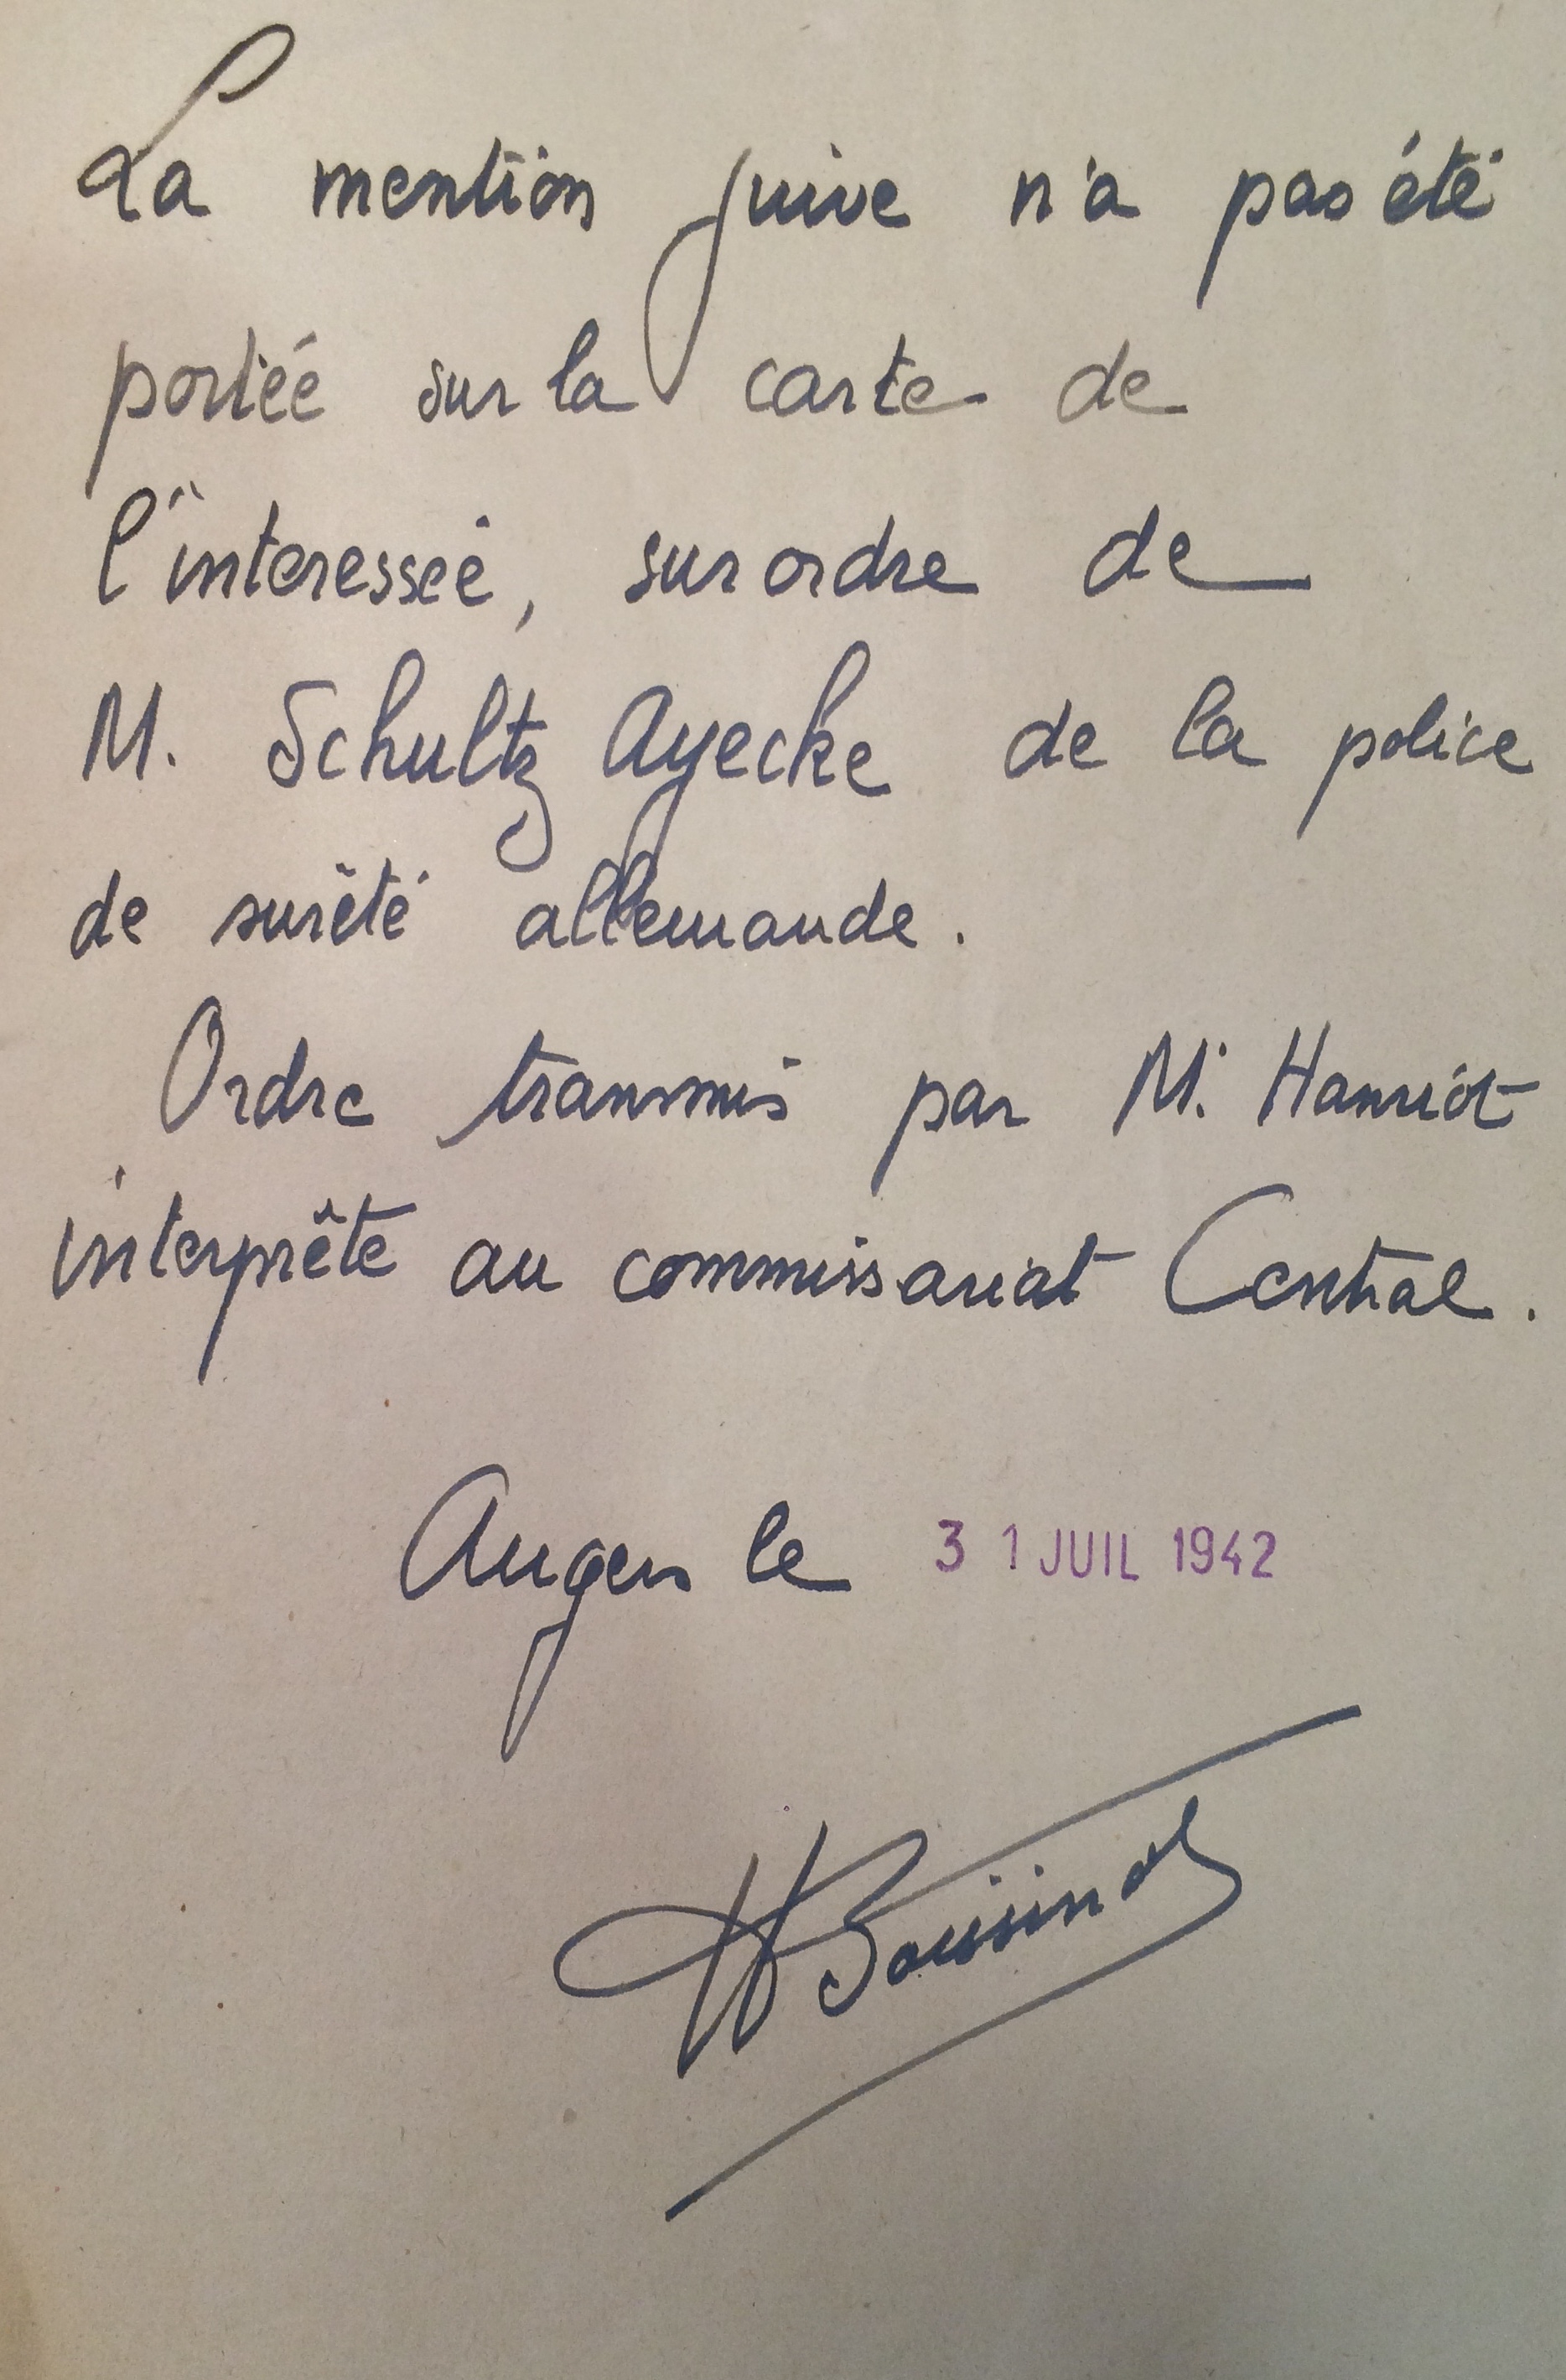 La mention juive n'a pas été
portée sur la carte de
l'interessée, sur ordre de
M. Schultz Ayecke de la police
de surêté allemande.
Ordre transmis par M. Hanriot
interprête au commissariat Central.
Angers le 31 JUIL 1942